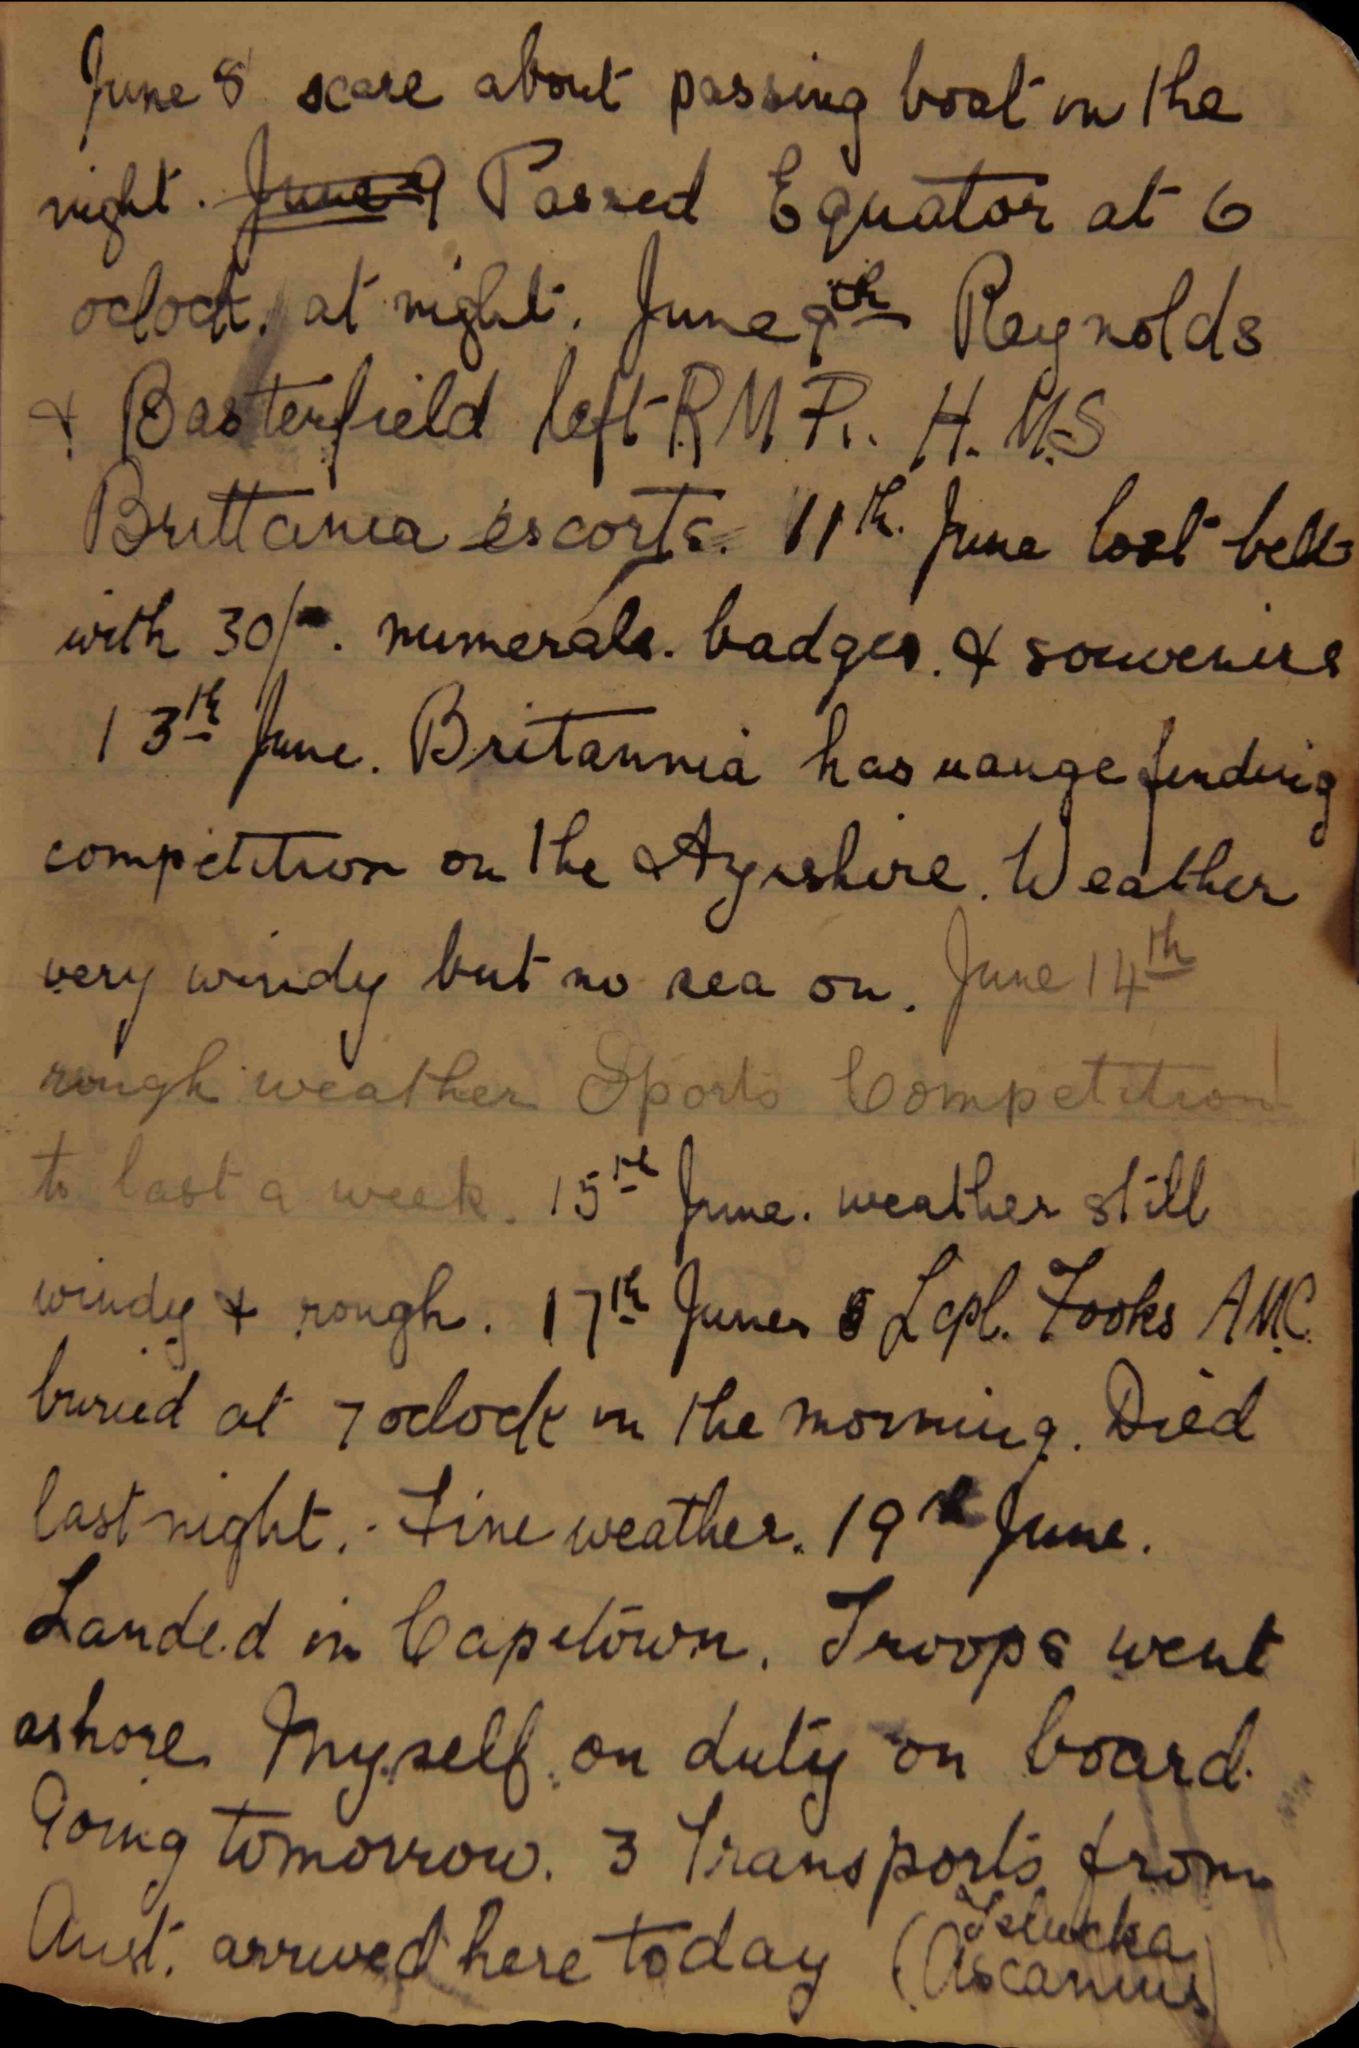 June 8 scare about passing boat in the
night. June 9 Passed Equator at 6
oclock. at night. June 9th Reynolds
& Basterfield left R M P. H. M. S
Brittania escorts. 11th June lost belt
with 30/-. numerals. badges. & souvenirs
13th June. Britannia has range finding
competition on the Ayrshire. Weather
very windy but no sea on. June 14th
rough weather Sports Competition
to last a week. 15th June. weather still
windy & rough. 17th June Lcpl. Fooks A.M.C.
buried at 7 oclock in the morning. Died
last night. Fine weather. 19th June.
Landed in Capetown. Troops went
ashore Myself on duty on board.
Going tomorrow. 3 Transports from
Aust. arrived here today (
Ascanius)